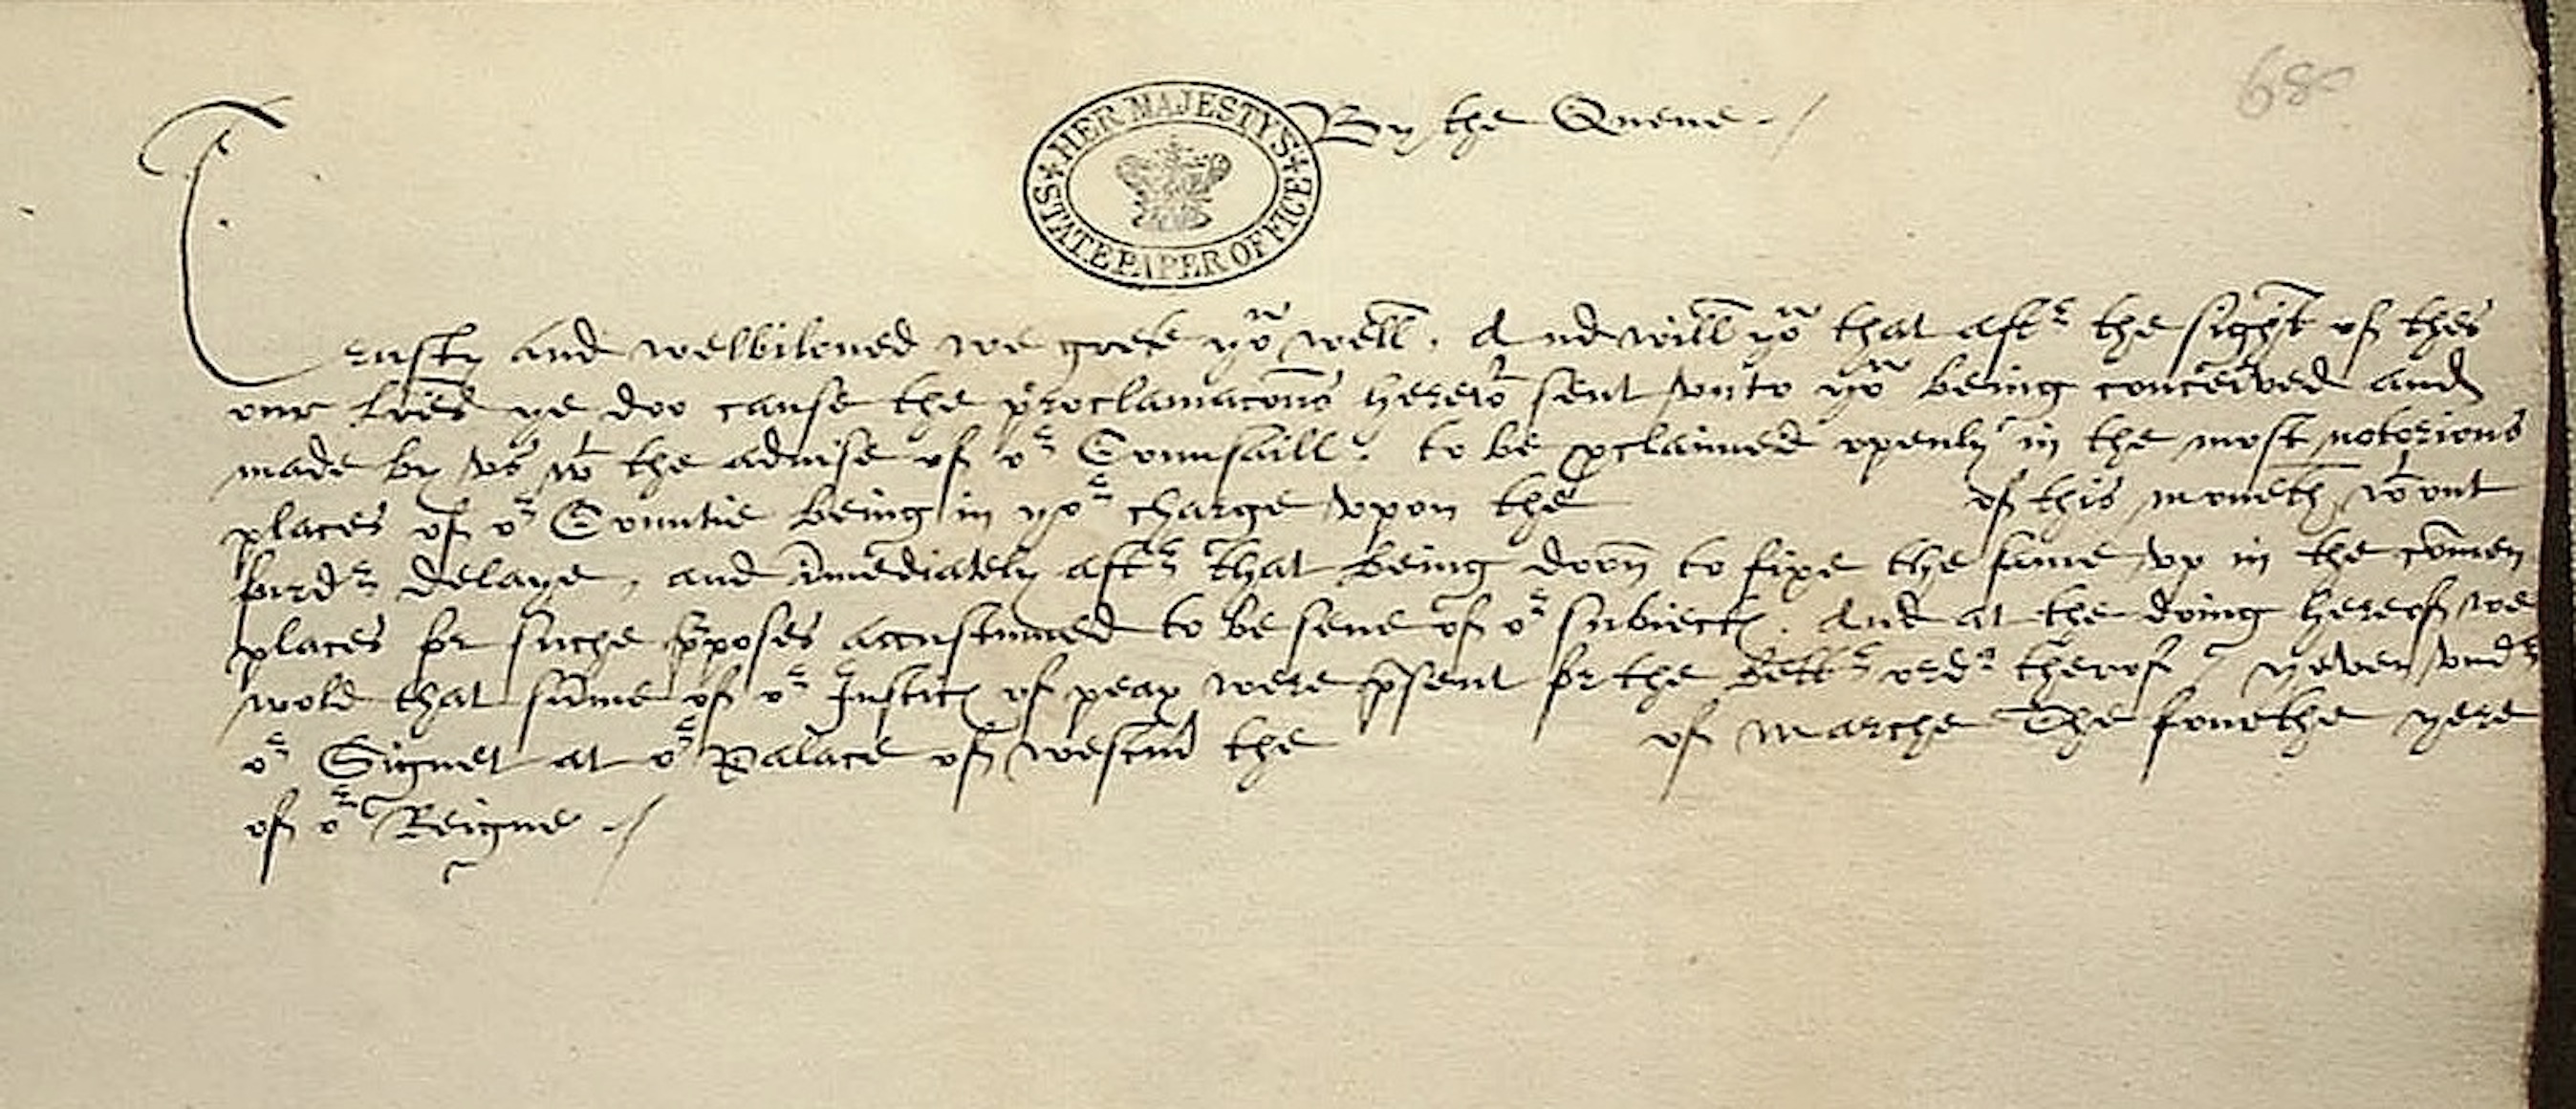 68
HER MAJESTYS STATE PAPER OFFICE
By the Quene ./
Trusty and welbiloued we grete yow well. And will yow that aftr the sight of thes
our lres ye doo cause the proclamacons hereto sent vnto yow being conceived and
made by vs wt the aduise of or Counsaill to be pclaimed openly in the most notorious
places of or Countie being in yor charge vpon the of this moneth wtout
furdr delaye, and imediately aftr that being doon to fixe the same vp in the comen
places for suche pposes accustumed to be sene of or subiects. And at the doing hereof we
wold that sume of or Justics of peax were psent for the bettr ordr therof yeven vndr
or Signet at or Palace of westmr the of Marche The fourthe yere
of or Reigne ./